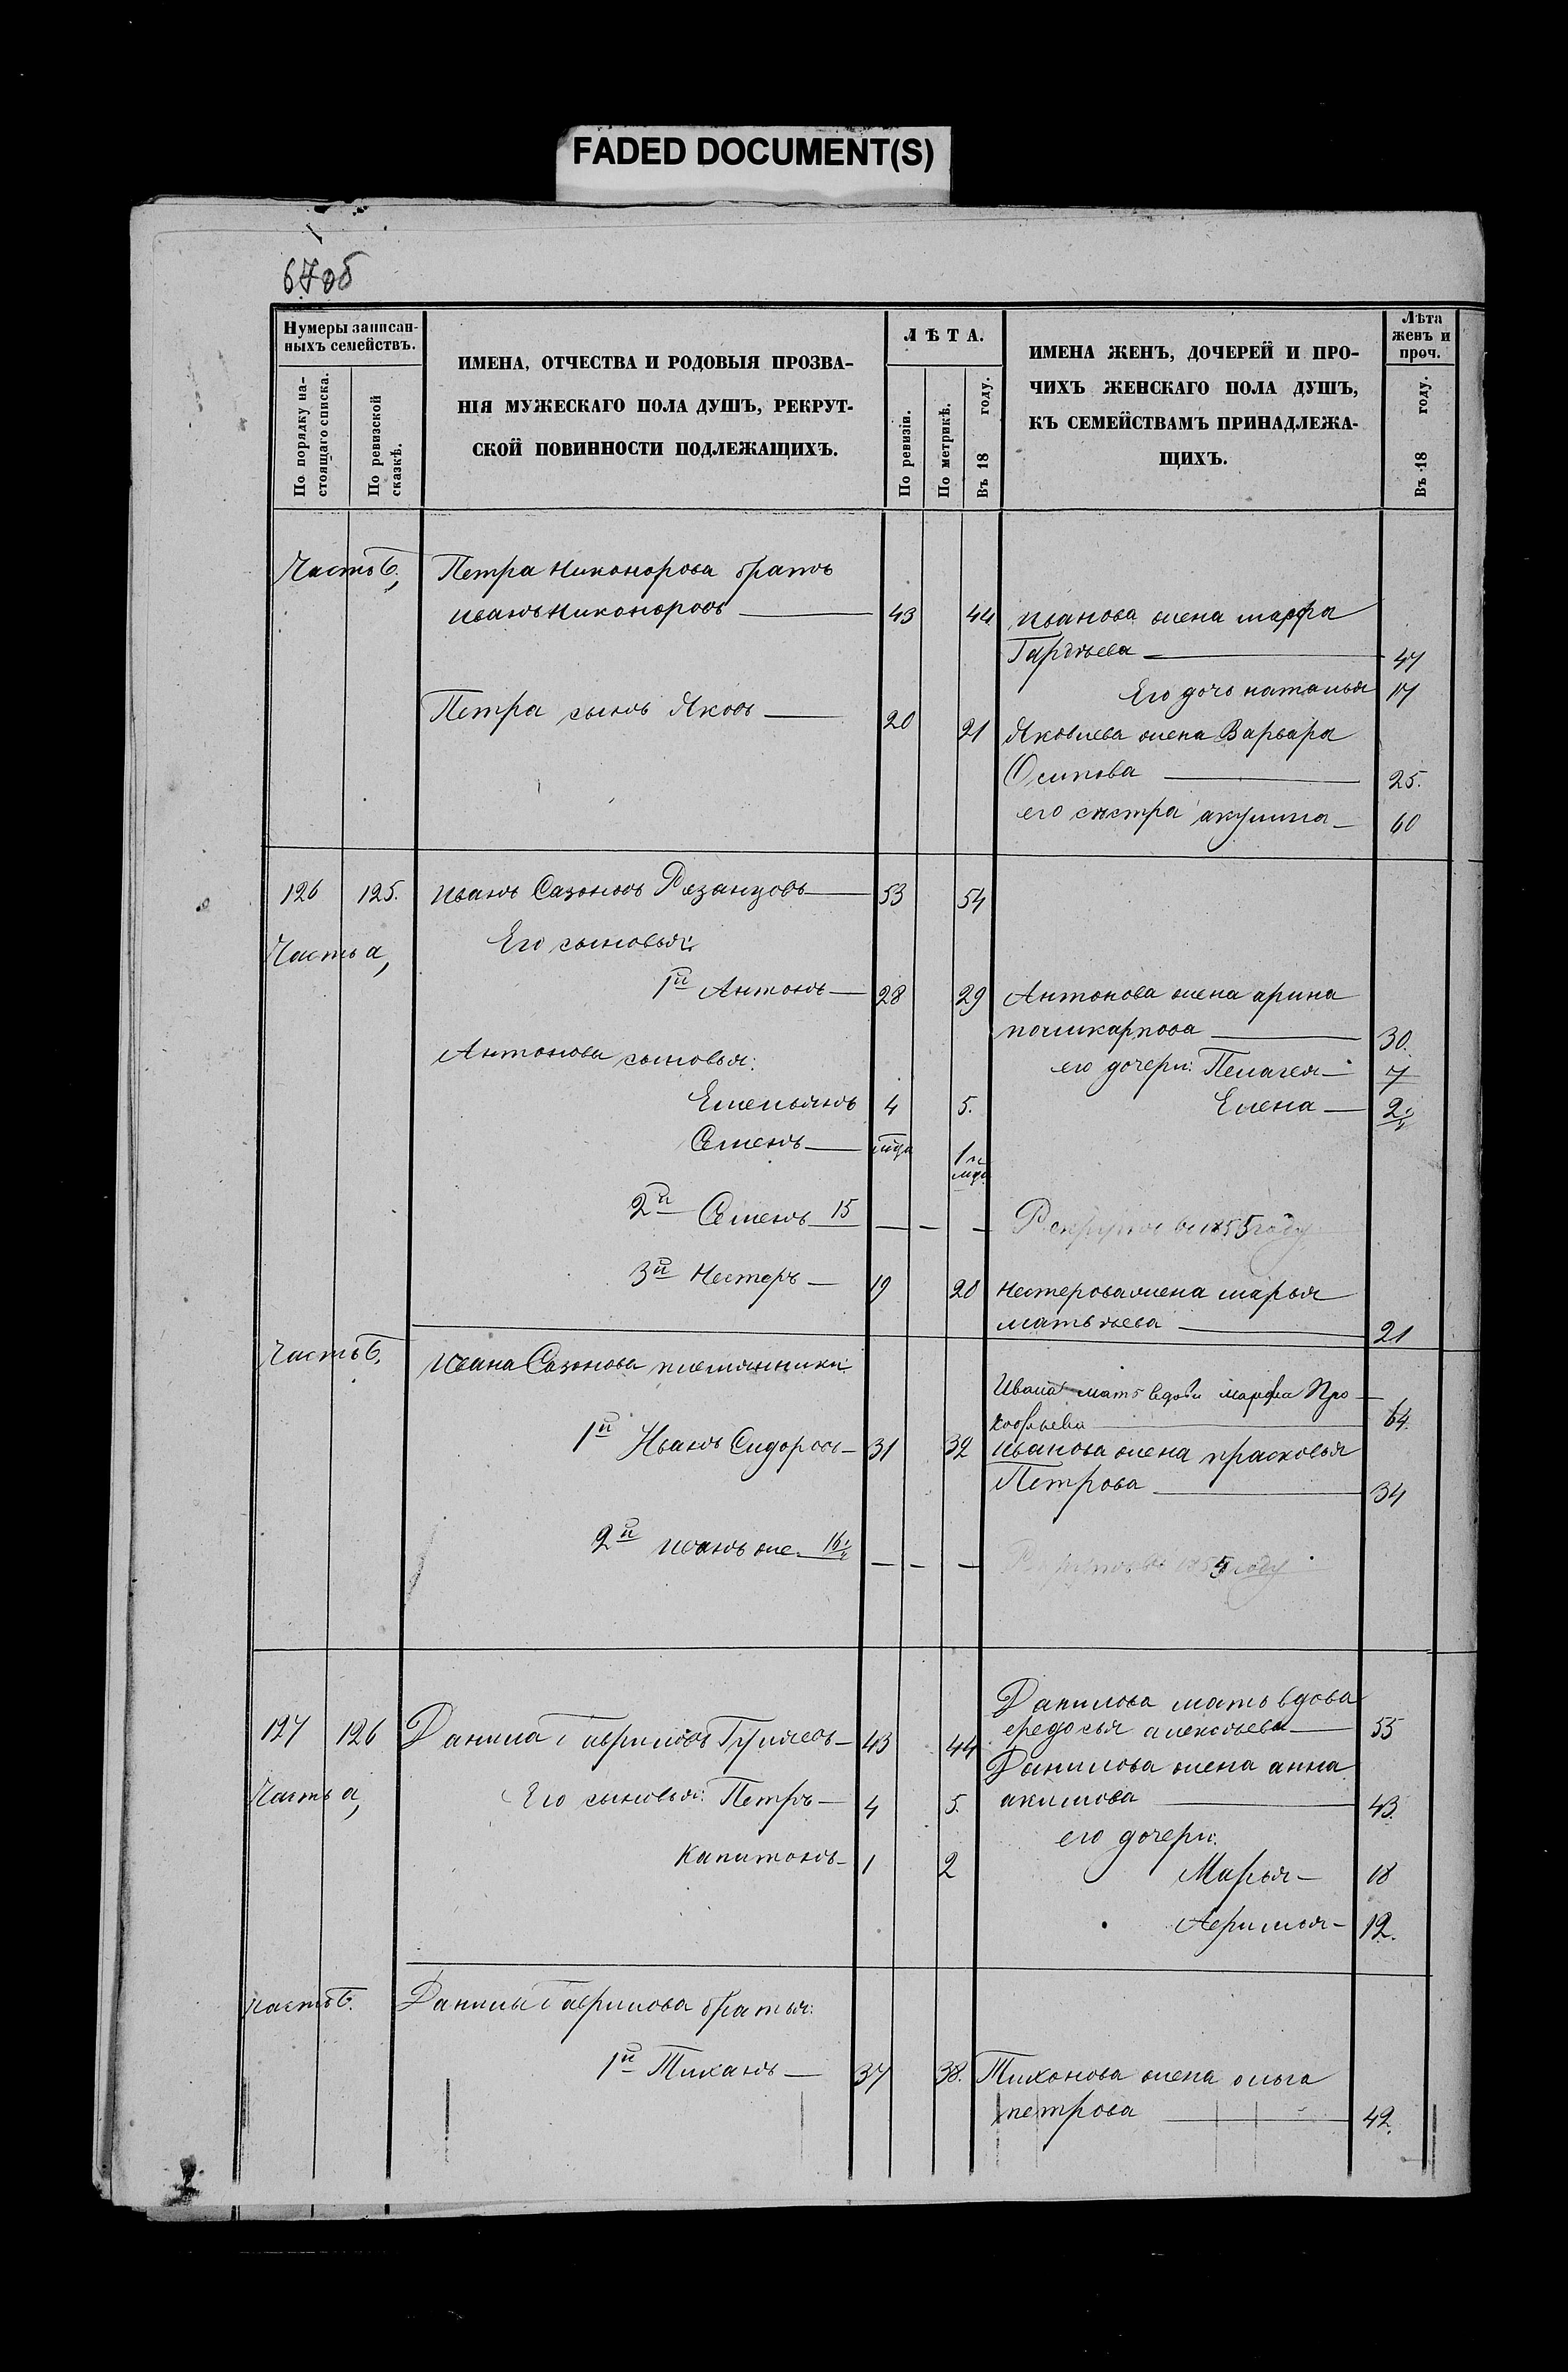 FADED DOCUMENT(S)
67об
Нумеры записан-
ныхъ семействъ.
По порядку на-
стоящаго списка.
По ревизской
сказкѣ.
ИМЕНА, ОТЧЕСТВА И РОДОВЫЯ ПРОЗВА-
НІЯ МУЖЕСКАГО ПОЛА ДУШЪ, РЕКРУТ-
СКОЙ ПОВИННОСТИ ПОДЛЕЖАЩИХЪ.
ЛѢТА.
По ревизіи.
По метрикѣ.
Въ 18 году.
ИМЕНА ЖЕНЪ, ДОЧЕРЕЙ И ПРО-
ЧИХЪ ЖЕНСКАГО ПОЛА ДУШЪ,
КЪ СЕМЕЙСТВАМЪ ПРИНАДЛЕЖА-
ЩИХЪ.
Лѣта
женъ и
проч.
Въ 18 году.
Часть б, Петра Никонорова братъ
иванъ Никоноровъ — 43 44 иванова жена марфа
Гардѣева — 47
Его дочь наталья 17
Петра сынъ Яковъ — 20 21 Яковлева жена Варвара
Осипова — 25.
его сестра акулина — 60
126 125. иванъ Сазоновъ Резанцовъ — 53 54
Часть а, Его сыновья:
1й Антонъ — 28 29 Антонова жена арина
поликарпова — 30.
Антоновы сыновья: его дочери: Пелагея — 7
Емельянъ 4 5. Елена — 2.
Семенъ —
2й Семенъ 15 — — — Рекрутъ въ 1855 году
3й Нестеръ — 19 20 Нестерова жена марья
матвѣева — 21
Часть б. Ивана Сазонова племянники:
Ивана мать вдова марфа Про-
кофьева — 64.
1й Иванъ Сидоровъ — 31 32 иванова жена прасковья
Петрова — 34
2й иванъ же 16. — — — Рекрутъ въ 1855 году
Данилова мать вдова
127 126 Данила Гавриловъ — 43 44 федосья алексѣева — 55
Данилова жена анна
Часть а, Его сыновья: Петръ — 4 5. акимова — 43.
его дочери:
Капитонъ — 1 2 Марья — 18
12.
Часть б. Данилы Гаврилова братья:
1й Тиханъ — 37 38. Тихонова жена ольга
петрова — 42.